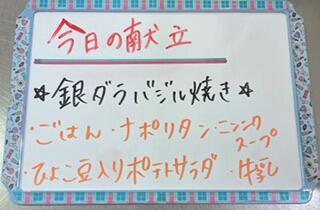 今日の献立
☆銀ダラバジル焼き☆
・ごはん・ナポリタン・ニンニクスープ
・ひよこ豆入りポテトサラダ・牛乳